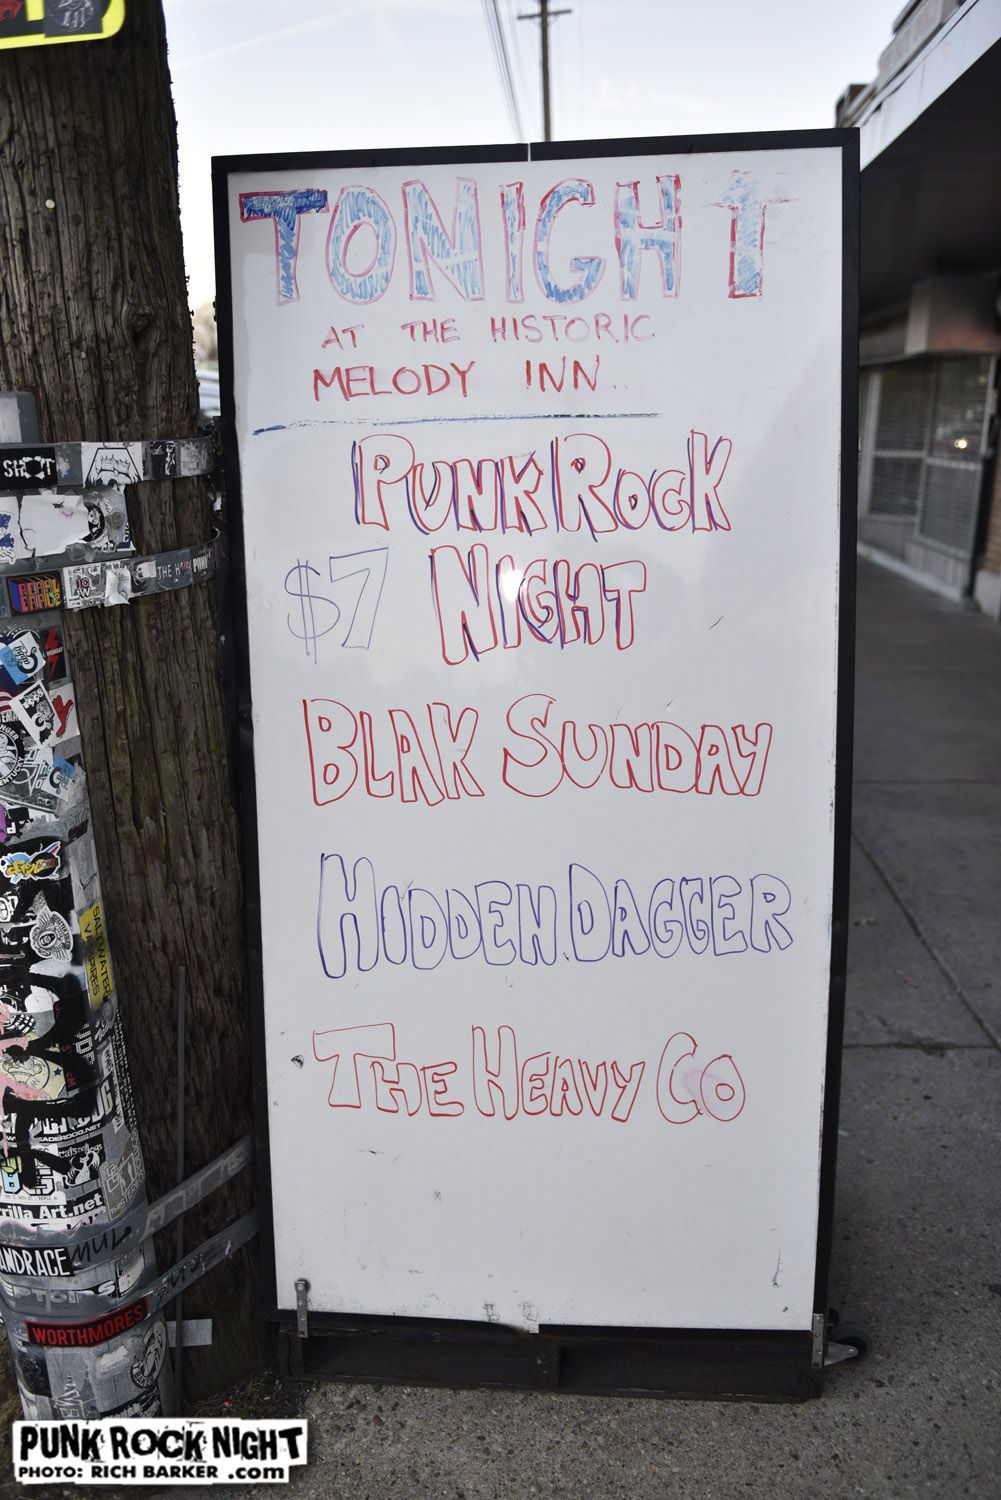 TONIGHT
AT THE HISTORIC
MELODY INN..
PUNK ROCK
$7 NIGHT
BLAK SUNDAY
HIDDEN DAGGER
THE HEAVY CO
SH*T
THE H
PUNK
PEARL
SALTWATER
VAMPIRES
SADERDOG.NET
cats n dogs
rilla Art.net
ANDRACE
MUL
WORTHMORES
PUNK ROCK NIGHT
PHOTO: RICH BARKER .com